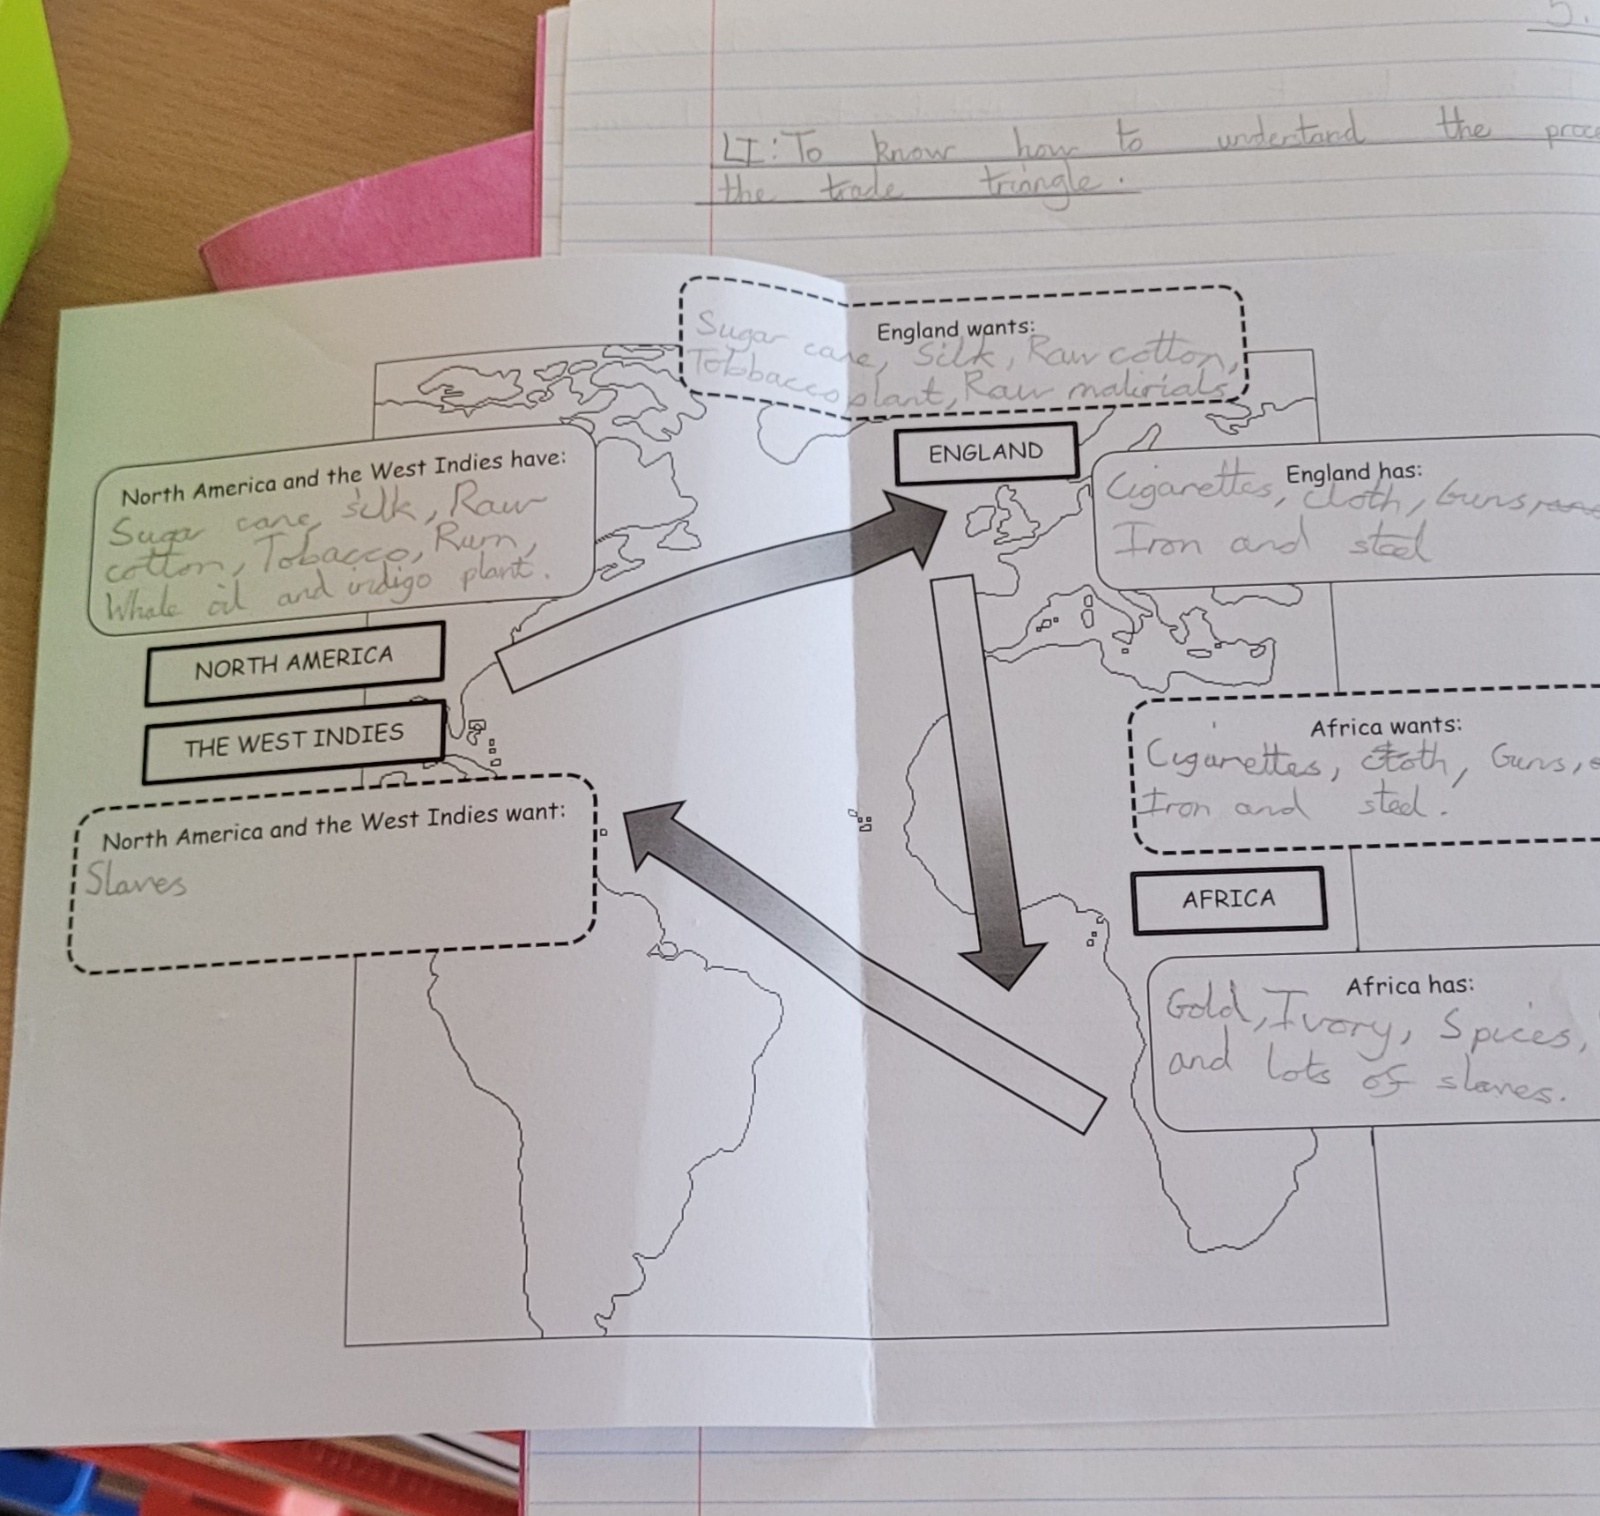 5.
LI: To know how to understand the proce
the trade triangle.
England wants:
Sugar cane, Silk, Raw cotton,
Tobbacco plant, Raw matirials
ENGLAND
North America and the West Indies have:
Sugar cane, silk, Raw
cotton, Tobacco, Rum,
Whale oil and indigo plant.
England has:
Cigarettes, cloth, Guns,
Iron and steel
NORTH AMERICA
THE WEST INDIES
Africa wants:
Cigarettes, cloth, Guns,
Iron and steel.
North America and the West Indies want:
Slaves
AFRICA
Africa has:
Gold, Ivory, Spices,
and lots of slaves.